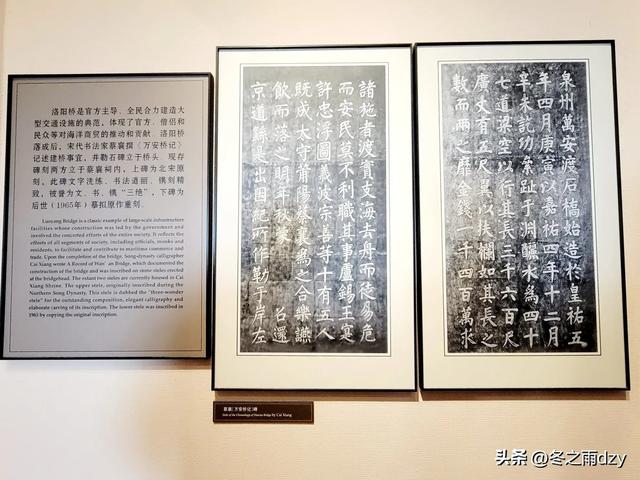 洛阳桥是官方主导、全民合力建造大
型交通设施的典范，体现了官方、僧侣和
民众等对海洋商贸的推动和贡献。洛阳桥
落成后，宋代书法家蔡襄撰《万安桥记》
记述建桥事宜，并勒石碑立于桥头。现存
碑刻两方立于蔡襄祠内，上碑为北宋原
刻，此碑文字洗练、书法遒丽、镌刻精
致，被誉为文、书、镌“三绝”，下碑为
后世（1965年）摹拟原作重刻。
Luoyang Bridge is a classic example of large-scale infrastructure
facilities whose construction was led by the government and
involved the concerted efforts of the entire society. It reflects the
efforts of all segments of society, including officials, monks and
residents, to facilitate and contribute to maritime commerce and
trade. Upon the completion of the bridge, Song-dynasty calligrapher
Cai Xiang wrote A Record of Wan'an Bridge, which documented the
construction of the bridge and was inscribed on stone steles erected
at the bridgehead. The extant two steles are currently housed in Cai
Xiang Shrine. The upper stele, originally inscribed during the
Northern Song Dynasty, This stele is dubbed the "three-wonder
stele" for the outstanding composition, elegant calligraphy and
elaborate carving of its inscription. The lower stele was inscribed in
1965 by copying the original inscription.
泉州萬安渡石橋始造於皇祐五
年四月庚寅以嘉祐四年十二月
辛未訖功絫趾于淵釃水為四十
七道梁空以行其長三千六百尺
廣丈有五尺翼以扶欄如其長之
數而兩之靡金錢一千四百萬求
諸施者渡實支海去舟而徒易危
而安民莫不利職其事盧錫王寔
許忠浮圖義波宗善等十有五人
既成太守莆陽蔡襄為之合樂讌
飲而落之明年秋蒙 召還
京道繇是出因紀所作勒于岸左
蔡襄《万安桥记》碑
by Cai Xiang
头条 @冬之雨dzy